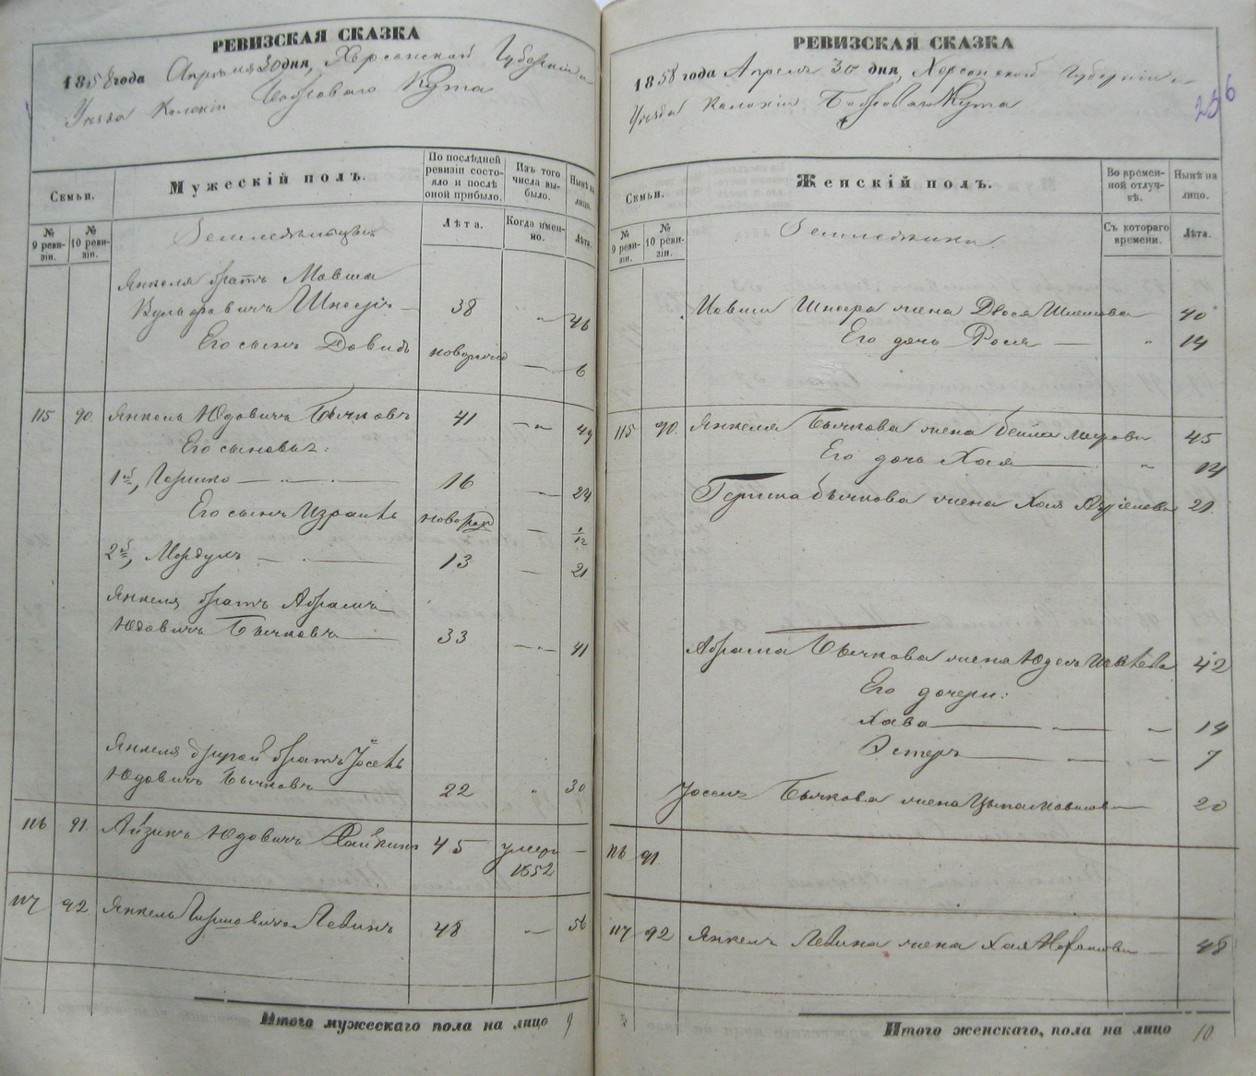 РЕВИЗСКАЯ СКАЗКА
1858 года Апреля 30 дня, Херсонской Губернии
Уезда Колонии Бобровый Кута
Семьи.
Мужескій полъ.
По послѣдней ревизіи состояло и послѣ оной прибыло.
Изъ того числа выбыло.
Нынѣ на лицо.
№ 9 ревизіи.
№ 10 ревизіи.
Лѣта.
Когда именно.
Лѣта.
Земледельцы
Янкеля братъ Мовша
38 46
Его сынъ Довидъ новорожд 6
115 90. Янкель Юдовичъ Бычковъ 41 49
Его сыновья:
1й, Гершко 16 24
Его сынъ Израиль новорожд 1/12
2й, Мордухъ 13 21
Янкеля братъ Абрамъ
Юдовичъ Бычковъ 33 41
Янкеля другой братъ Іосель
Юдовичъ Бычковъ 22 30
116 91. Айзикъ Юдовичъ Файкинъ 45 умеръ 1852 —
117 92 Янкель Гиршовичъ Левинъ 48 56
Итого мужескаго пола на лицо 9
РЕВИЗСКАЯ СКАЗКА
1858 года Апреля 30 дня, Херсонской Губернии
Уезда Колонии Бобровый Кута
256
Семьи.
Женскій полъ.
Во временной отлучкѣ.
Нынѣ на лицо.
№ 9 ревизіи.
№ 10 ревизіи.
Съ котораго времени.
Лѣта.
Мовши Шнеера жена Двося 40
Его дочь Рося 14
115 90. Янкеля Бычкова жена Бейла 45
Его дочь Хая 14
Гершка Бычкова жена Хая 21
Абрама Бычкова жена Юдесъ 42
Его дочери:
Хава 14
Эстеръ 7
Іоселя Бычкова жена 20
116 91.
117 92 Янкеля Левина жена Хая 48
Итого женскаго, пола на лицо 10.